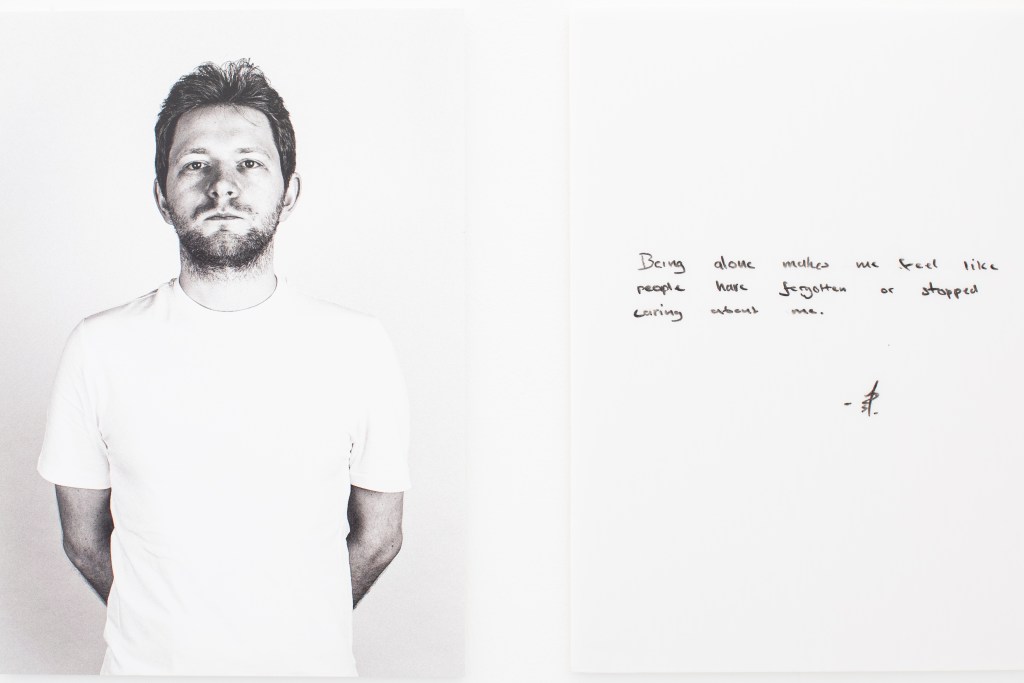 Being alone makes me feel like
people have forgotten or stopped
caring about me.